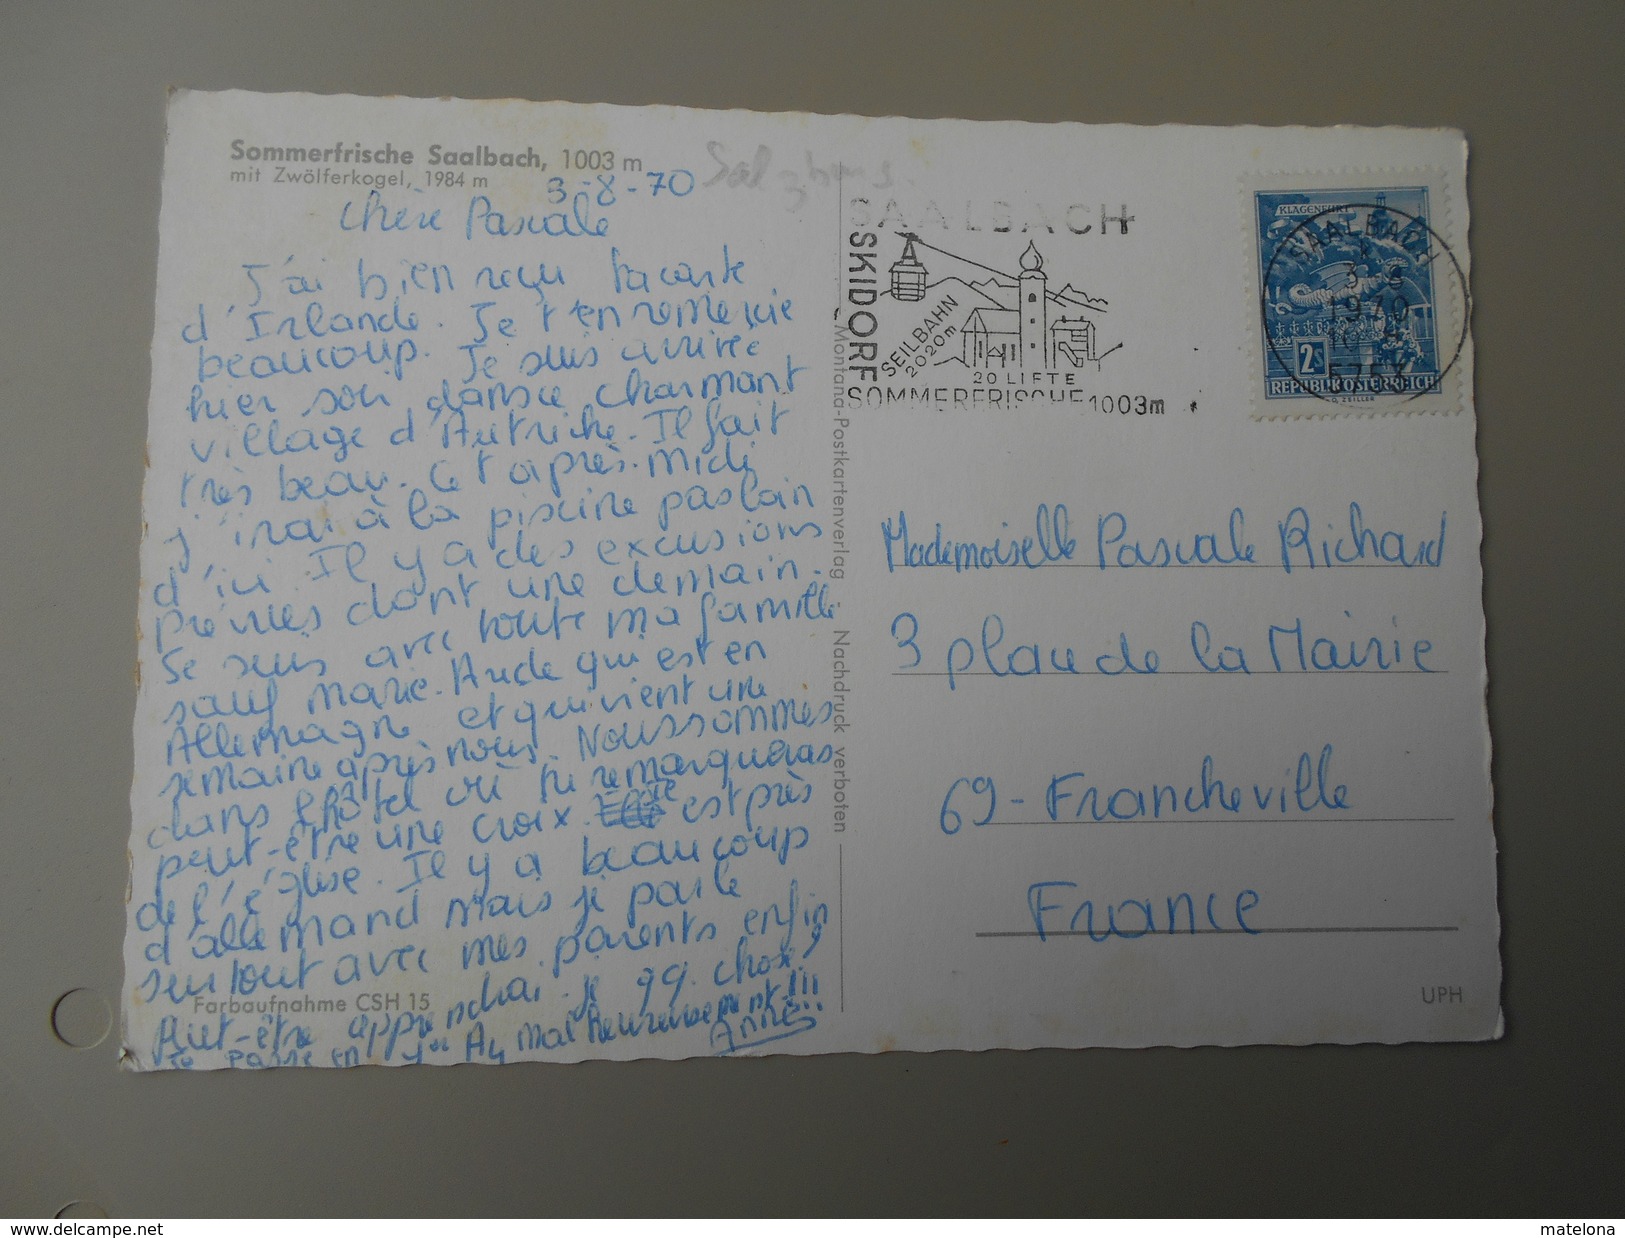 Sommerfrische Saalbach, 1003 m
mit Zwölferkogel, 1984 m
3-8-70
Chère Pascale
J'ai bien reçu ta carte
d'Irlande. Je t'en remercie
beaucoup. Je suis arrivée
hier soir dans ce charmant
village d'Autriche. Il fait
très beau. Cet après-midi
j'irai à la piscine pas loin
d'ici. Il y a des excusions
prévues dont une demain.
Je suis avec toute ma famille
sauf Marie-Aude qui est en
Allemagne et qui vient une
semaine après nous. Nous sommes
dans l'hôtel où tu remarqueras
peut-être une croix. Il est près
de l'église. Il y a beaucoup
d'allemand mais je parle
surtout avec mes parents enfin
Peut-être apprendrai-je qq. chose?
Je passe en 1ère A4 malheureusement!!!
Anne
Farbaufnahme CSH 15
Montana-Postkartenverlag Nachdruck verboten
SAALBACH
SKIDORF
SEILBAHN
2020m
20 LIFTE
SOMMERFRISCHE 1003m
KLAGENFURT
2s
REPUBLIK ÖSTERREICH
O. ZEILLER
SAALBACH
1970
5753
Mademoiselle Pascale Richard
3 place de la Mairie
69 - Francheville
France
UPH
www.delcampe.net
matelona